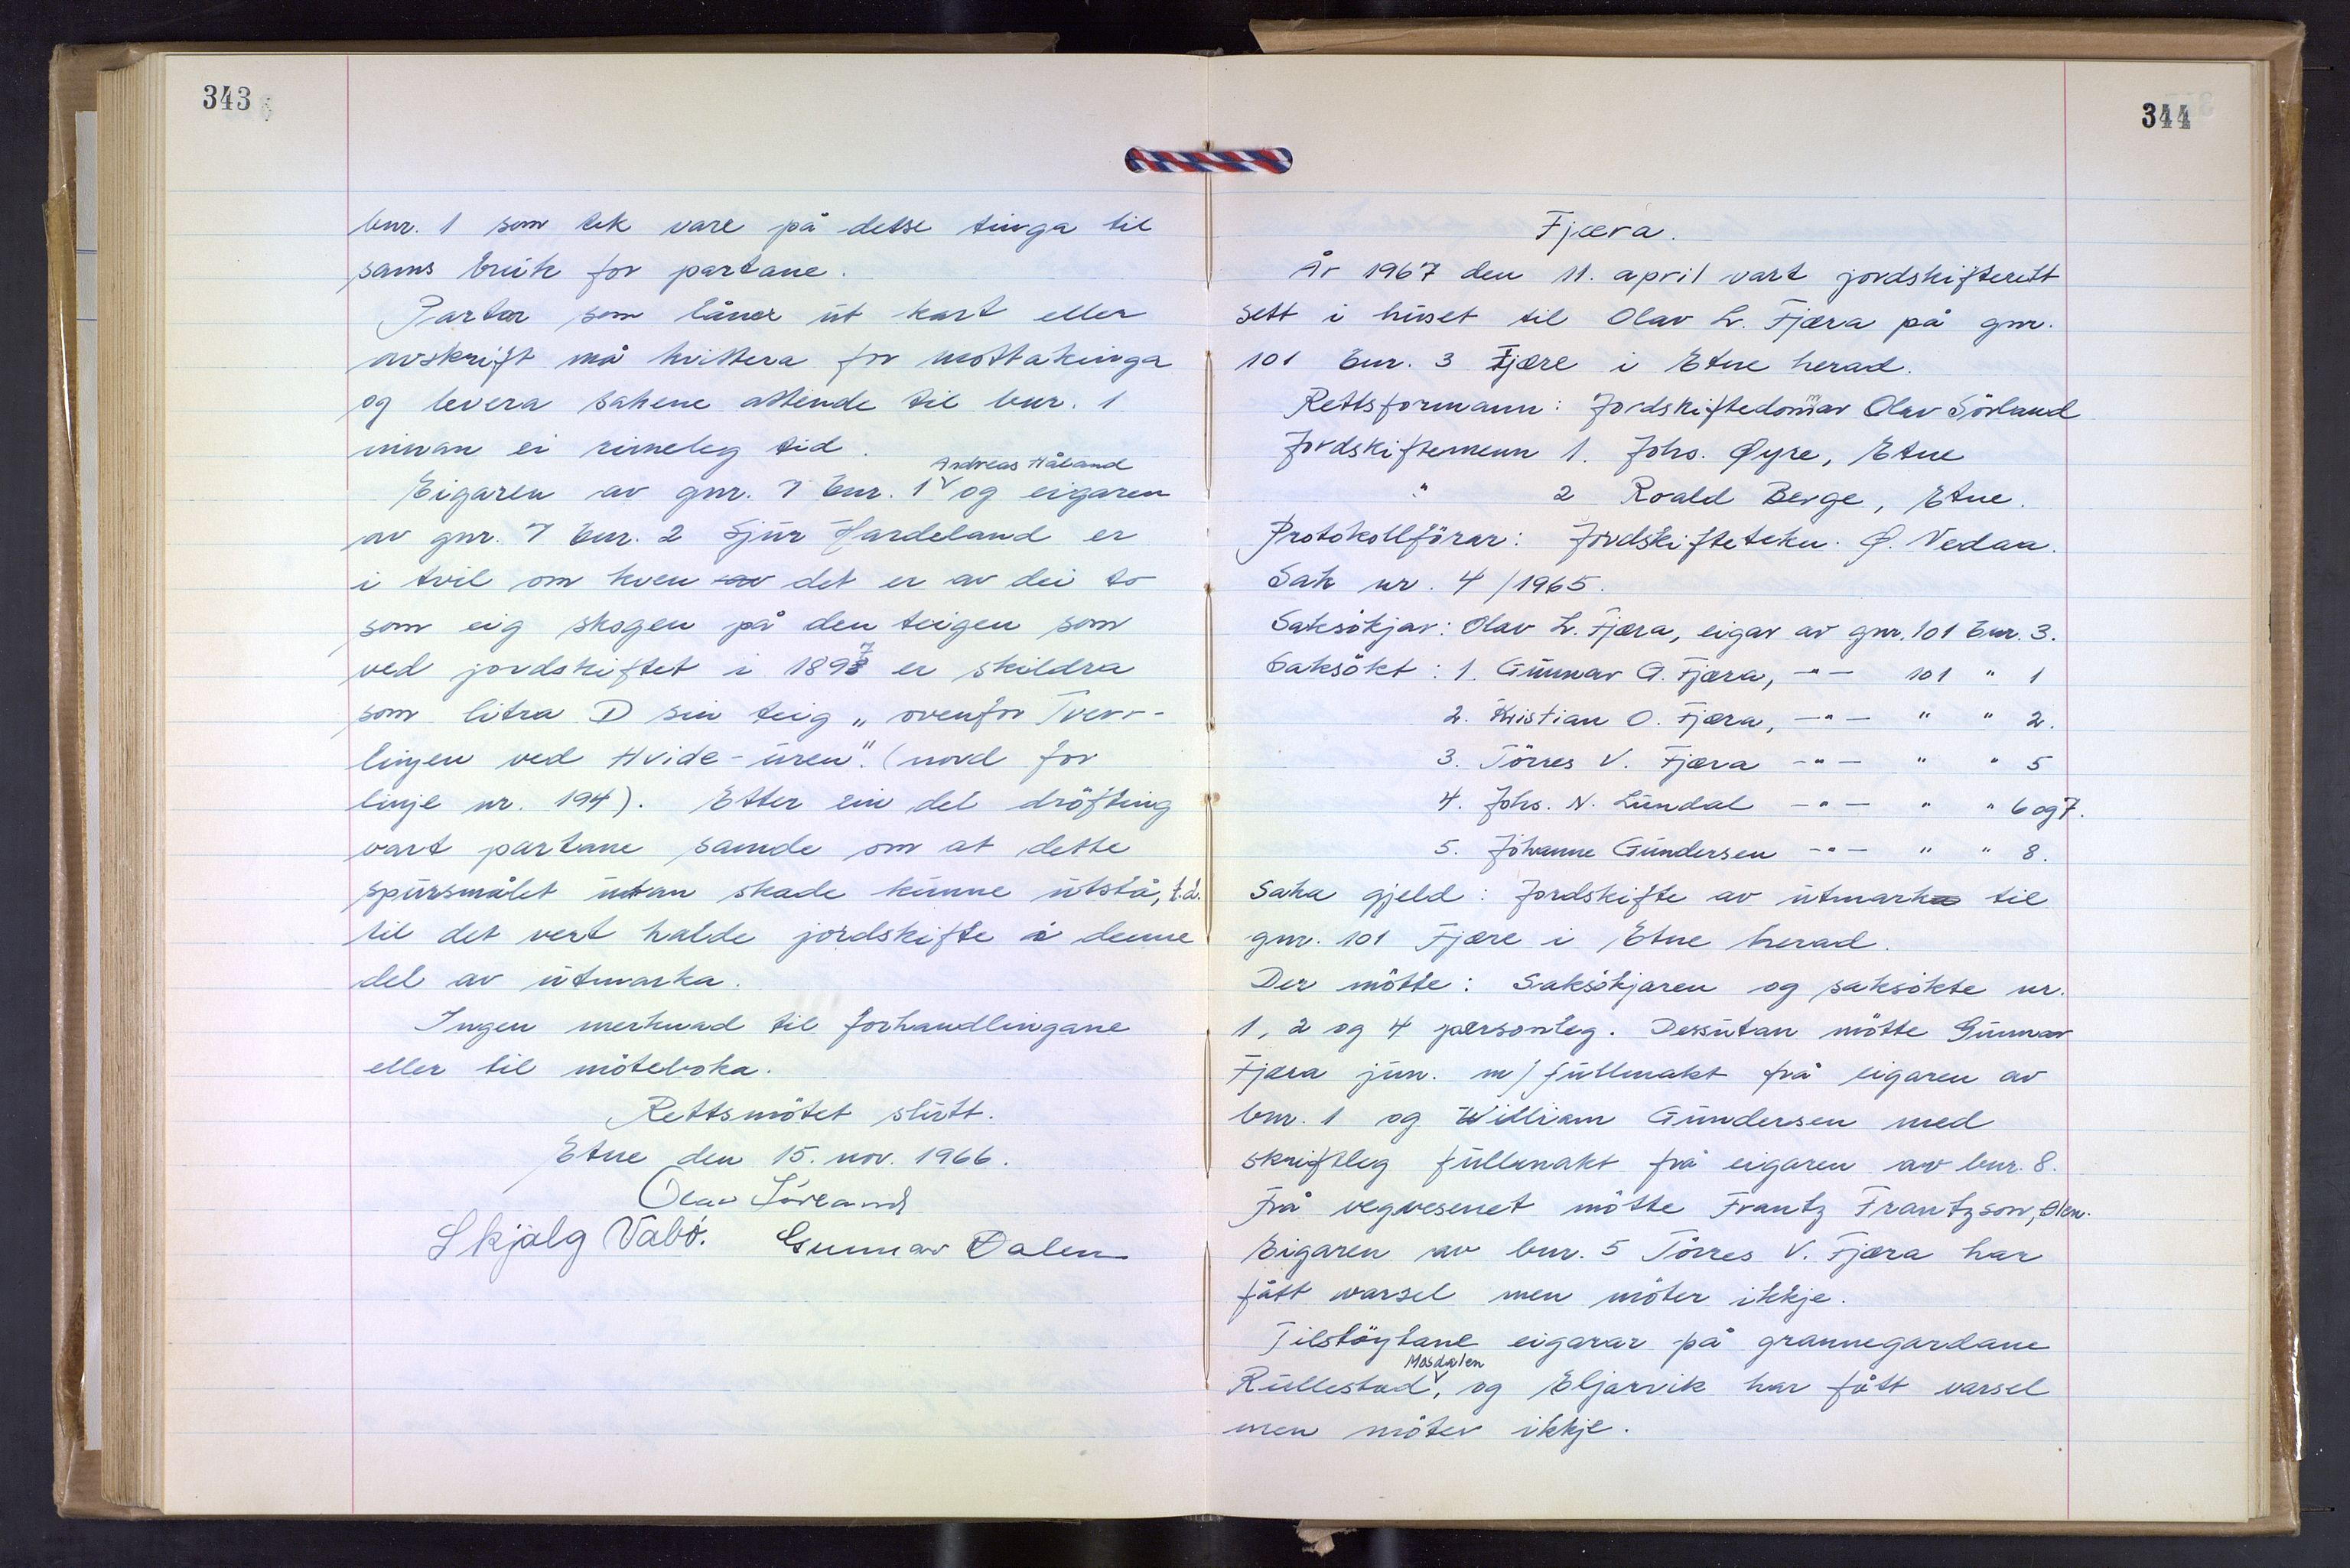 343
bnr. 1 som tek vare på desse tinga til
sams bruk for partane.
Partar som låner ut kart eller
avskrift må kvittera for mottakinga
og levera sakene attende til bnr. 1
innan ei rimeleg tid.
Andreas Håland
Eigaren av gnr. 7 bnr. 1 og eigaren
av gnr. 7 bnr. 2 Sjur Hardeland er
i tvil om kven av det er av dei to
som eig skogen på den teigen som
ved jordskiftet i 1897 er skildra
som litra D sin teig „ ovenfor Tverr-
lingen ved Hvide-uren". (nord for
linje nr. 194). Etter ein del dröfting
vart partane samde om at dette
spursmålet utan skade kunne utstå, t.d.
til det vert halde jordskifte i denne
del av utmarka.
Ingen merknad til forhandlingane
eller til möteboka.
Rettsmötet slutt.
Etne den 15. nov. 1966.
Olav Sörland
Skjalg Vabö. Gunnar Dalen
344
Fjæra.
År 1967 den 11. april vart jordskifterett
sett i huset til Olav L. Fjæra på gnr.
101 bnr. 3 Fjære i Etne herad.
Rettsformann: Jordskiftedommar Olav Sörland
Jordskiftemenn 1. Johs. Øyre, Etne
" 2 Roald Berge, Etne.
Protokollförar: Jordskiftetekn. Ø. Vedaa.
Sak nr. 4/1965.
Saksökjar: Olav L. Fjæra, eigar av gnr. 101 bnr. 3.
Saksökt: 1. Gunnar G. Fjæra, -"- 101 " 1
2. Kristian O. Fjæra, -"- " " 2.
3. Törres V. Fjæra -"- " " 5
4. Johs. N. Lundal -"- " " 6 og 7.
5. Johanne Gundersen -"- " " 8.
Saka gjeld: Jordskifte av utmark til
gnr. 101 Fjære i Etne herad.
Der mötte: Saksökjaren og saksökte nr.
1, 2 og 4 personleg. Dessutan mötte Gunnar
Fjæra jun. m/fullmakt frå eigaren av
bnr. 1 og William Gundersen med
skriftleg fullmakt frå eigaren av bnr. 8.
Frå vegvesenet mötte Frantz Frantzson, Ølen.
Eigaren av bnr. 5 Törres V. Fjæra har
fått varsel men möter ikkje.
Tilstöytane eigarar på grannegardane
Mosdalen
Rullestad, og Eljarvik har fått varsel
men möter ikkje.